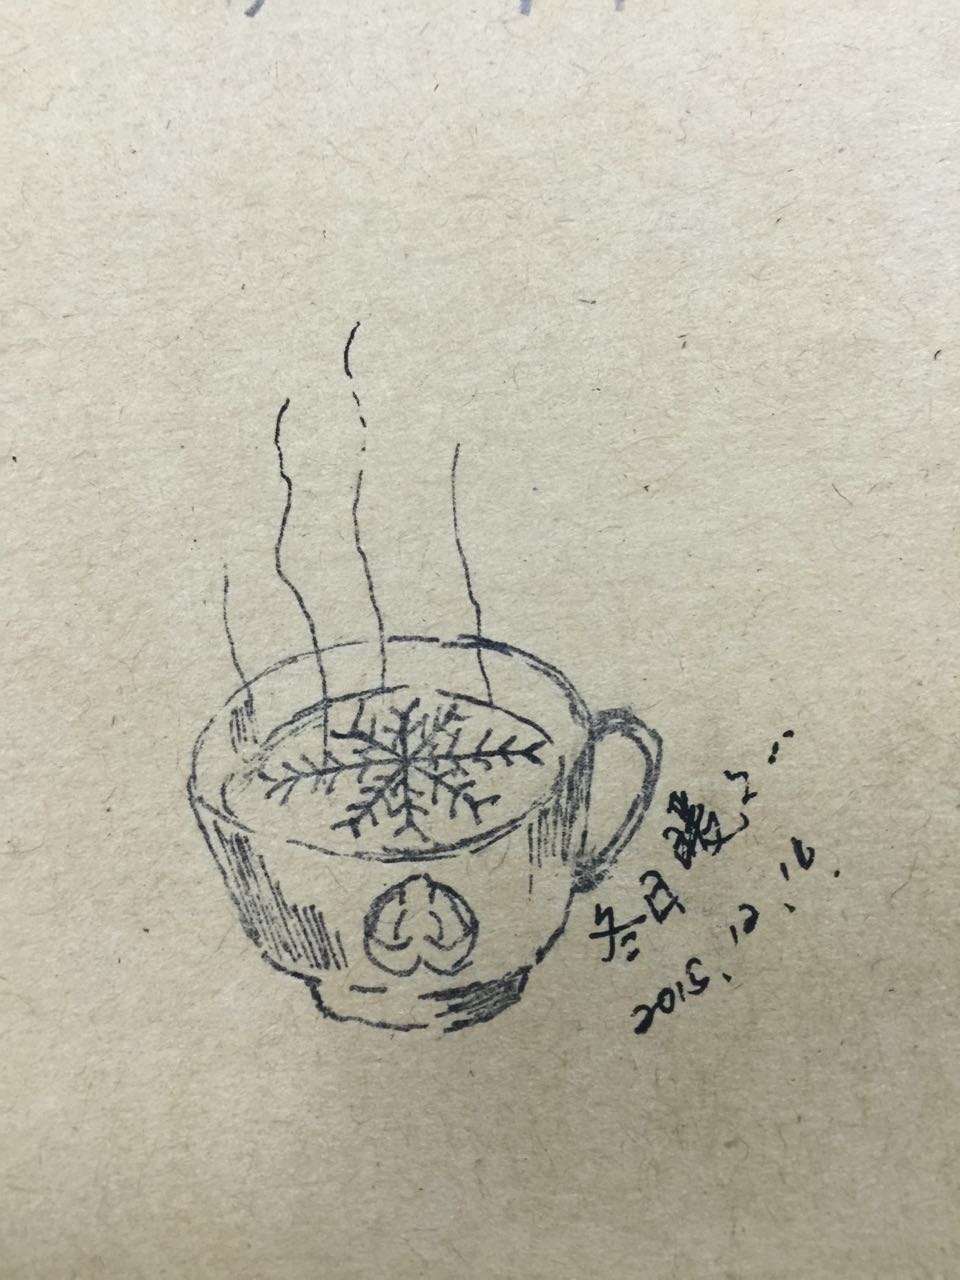 冬日暖
2015.12.16.